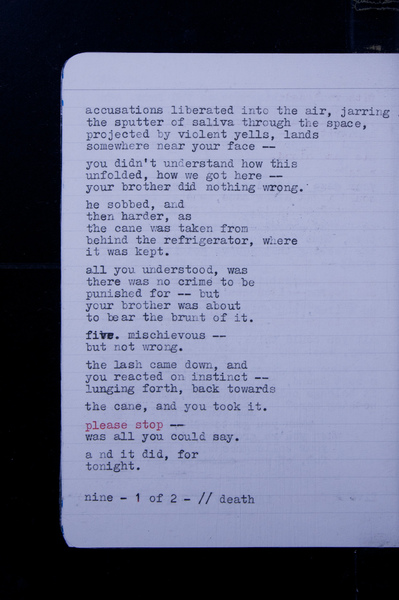 accusations liberated into the air, jarring
the sputter of saliva through the space,
projected by violent yells, lands
somewhere near your face --
you didn't understand how this
unfolded, how we got here --
your brother did nothing wrong.
he sobbed, and
then harder, as
the cane was taken from
behind the refrigerator, where
it was kept.
all you understood, was
there was no crime to be
punished for -- but
your brother was about
to bear the brunt of it.
five. mischievous --
but not wrong.
the lash came down, and
you reacted on instinct --
lunging forth, back towards
the cane, and you took it.
please stop --
was all you could say.
a nd it did, for
tonight.
nine - 1 of 2 - // death